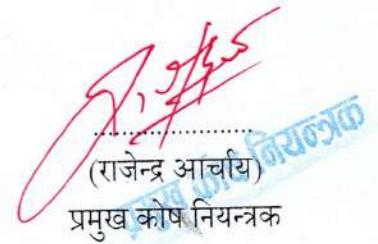 ....................
(राजेन्द्र आर्चाय)
प्रमुख कोष नियन्त्रक
प्रमुख कोष नियन्त्रक